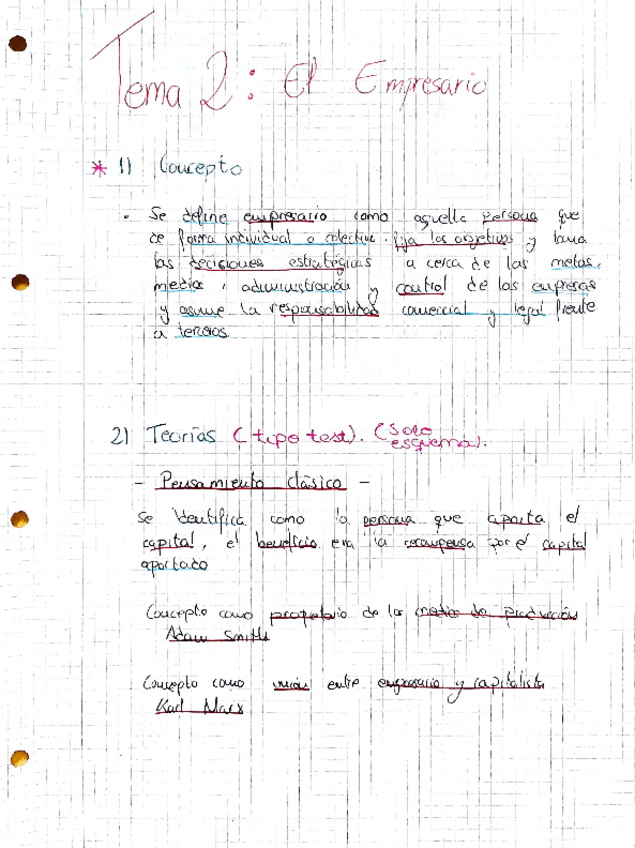 Tema 2: El Empresario
* 1) Concepto
• Se define empresario como aquella persona que
de forma individual o colectiva, fija los objetivos y toma
las decisiones estratégicas a cerca de las metas,
medios, administración y control de las empresas
y asume la responsabilidad comercial y legal frente
a terceros
2) Teorías (tipo test). (Solo esquema).
- Pensamiento clásico -
Se identifica como la persona que aporta el
capital, el beneficio era la recompensa por el capital
aportado
Concepto como propietario de los medios de producción
Adam Smith
Concepto como unión entre empresario y capitalista
Karl Marx